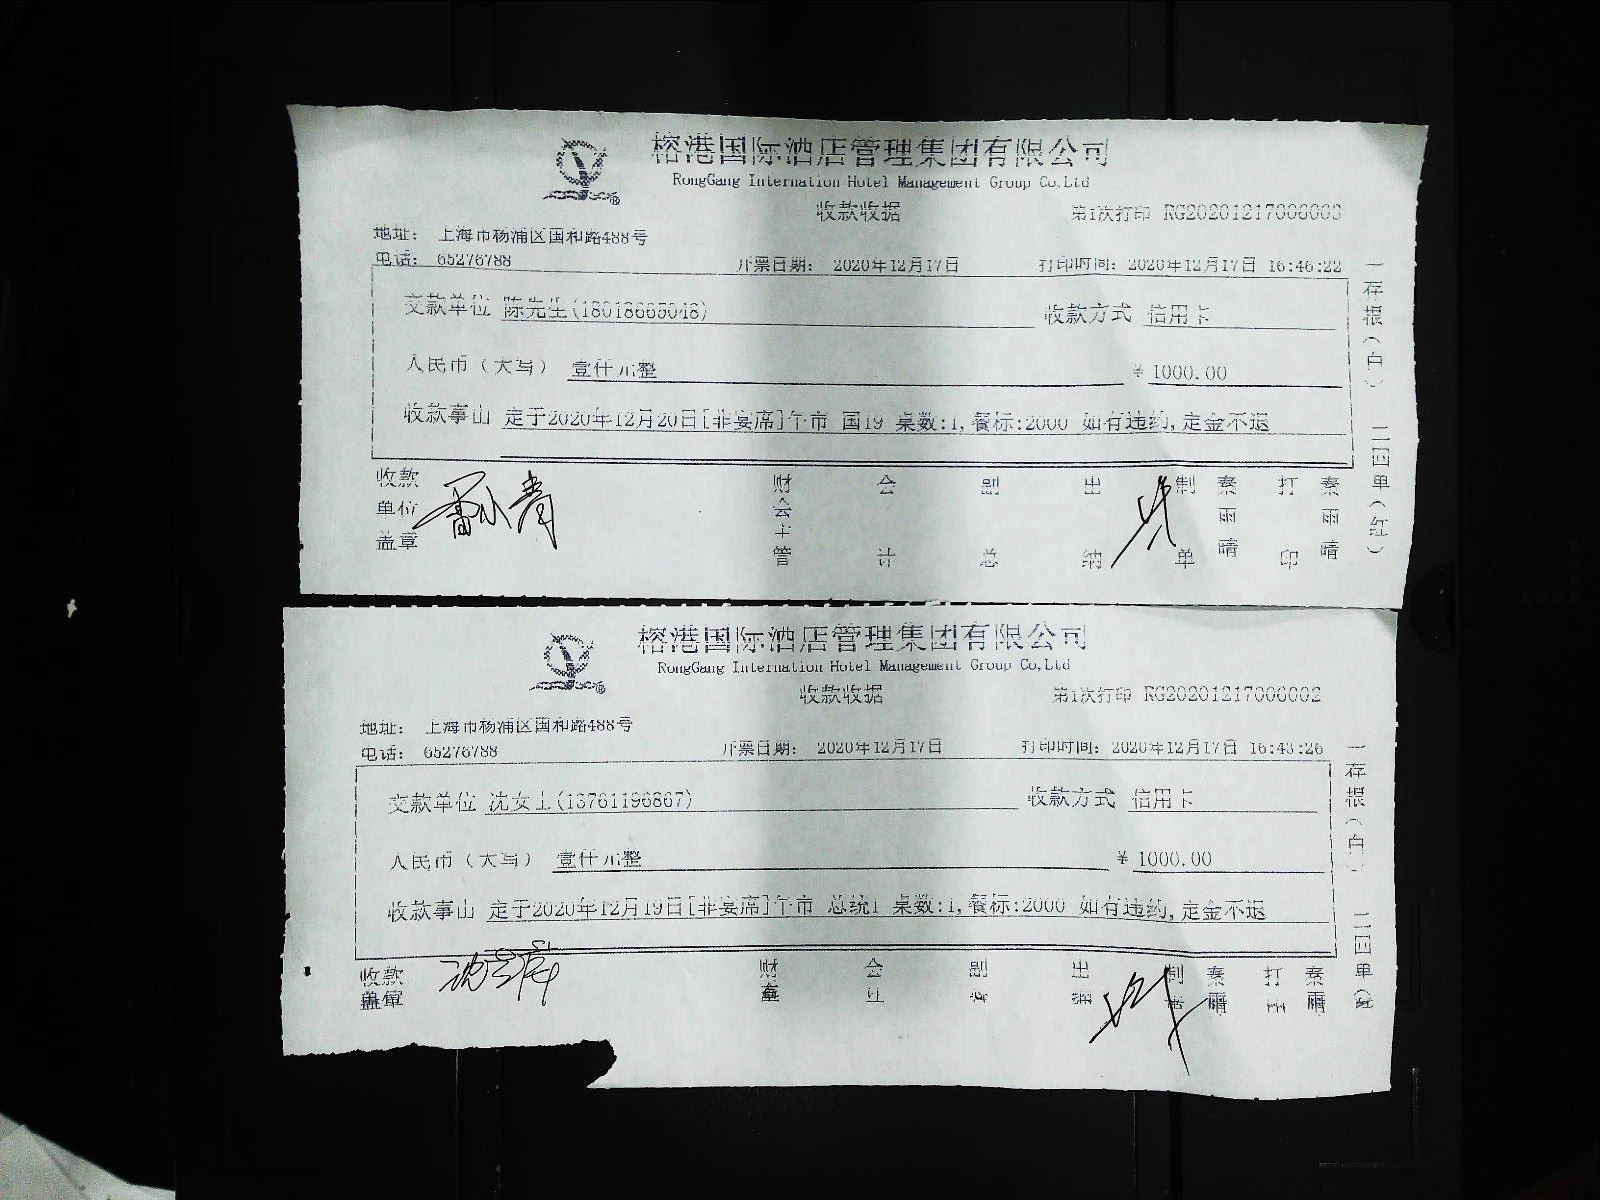 榕港国际酒店管理集团有限公司
RongGang Internation Hotel Management Group Co,Ltd
收款收据 第1次打印 RG20201217006003
地址： 上海市杨浦区国和路488号
电话： 65276788 开票日期： 2020年12月17日 打印时间：2020年12月17日 16:46:22
交款单位 陈先生(18018665048) 收款方式 信用卡
人民币（大写） 壹仟元整 ￥ 1000.00
收款事由 定于2020年12月20日[非宴席]午市 国19 桌数:1,餐标:2000 如有违约,定金不退
收款单位盖章 财会主管 会计 副总 出纳 制单 秦雨晴 打印 秦雨晴
一存根（白） 二回单（红）
榕港国际酒店管理集团有限公司
RongGang Internation Hotel Management Group Co,Ltd
收款收据 第1次打印 RG20201217006002
地址： 上海市杨浦区国和路488号
电话： 65276788 开票日期： 2020年12月17日 打印时间：2020年12月17日 16:43:26
交款单位 沈女士(13761196867) 收款方式 信用卡
人民币（大写） 壹仟元整 ￥ 1000.00
收款事由 定于2020年12月19日[非宴席]午市 总统1 桌数:1,餐标:2000 如有违约,定金不退
收款 财 会 副 出 制 秦雨晴 打 秦雨晴
一存根（白） 二回单